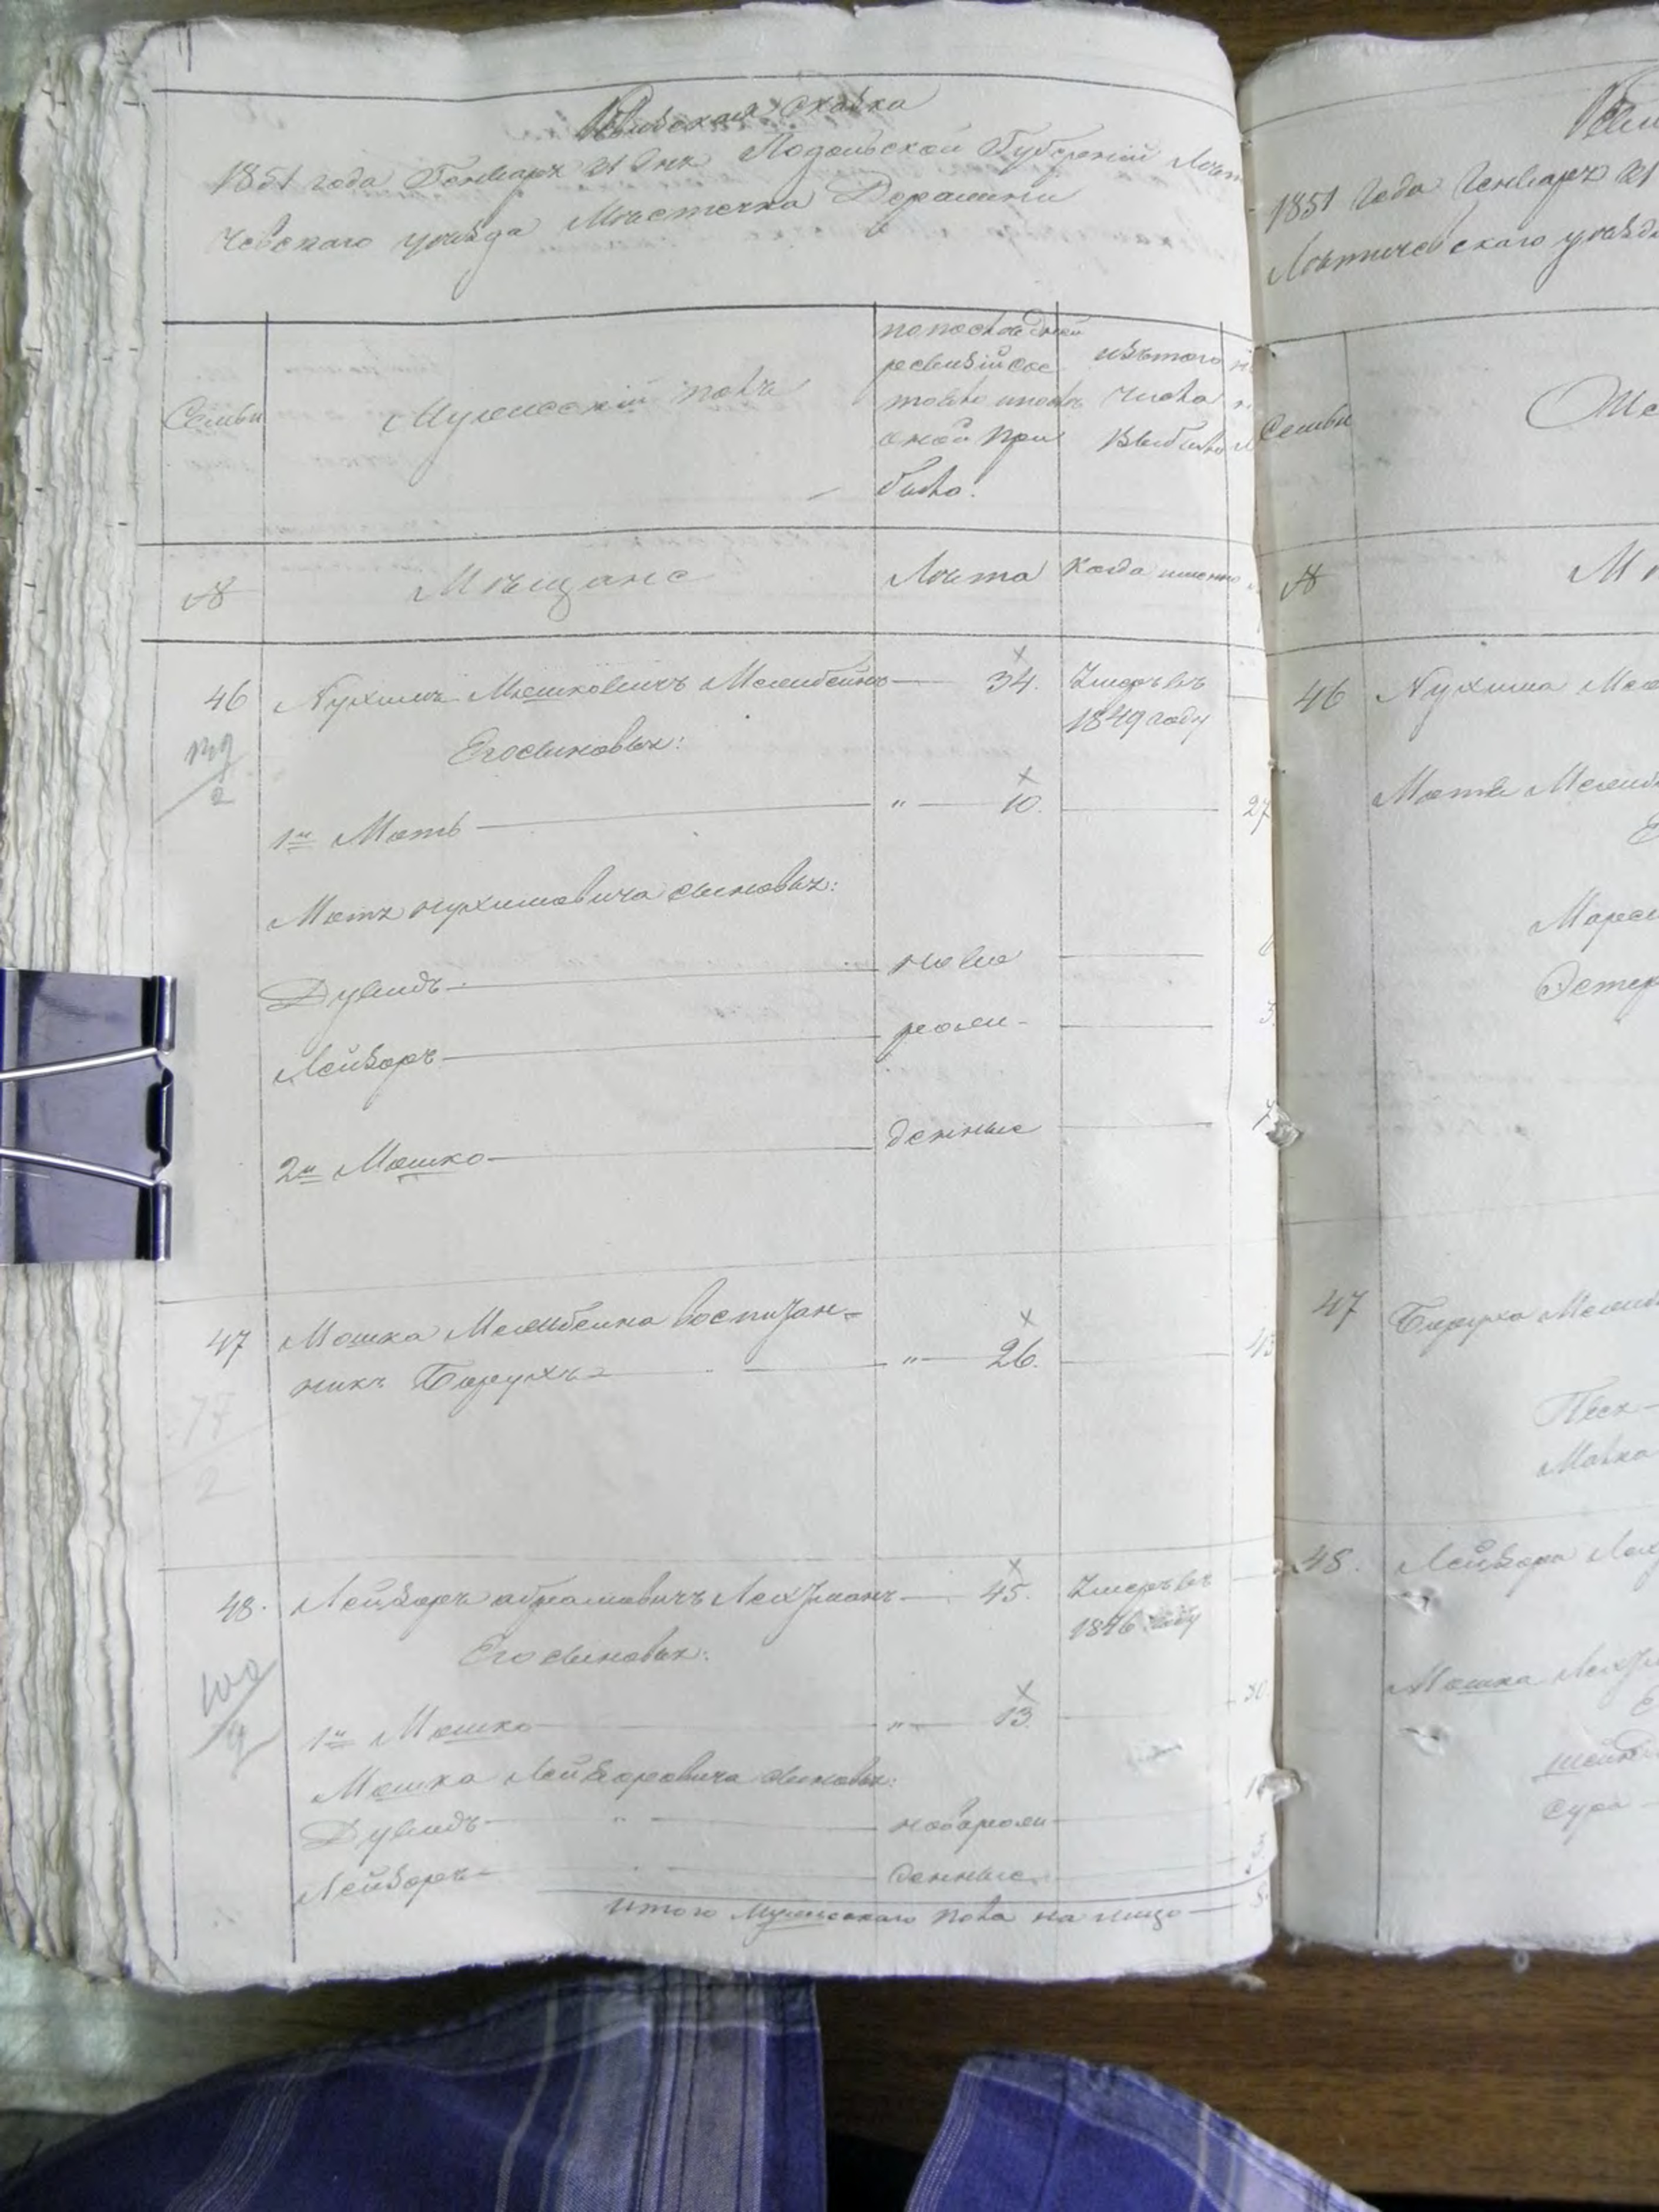 Ревизская сказка
1851 года Генваря 21 дня Подольской Губернии Лети
чевскаго уезда Местечка Деражни
Семьи
Мужеский полъ
по последней
ревизии сос
тояло и после
оной при
было.
изъ того
числа
выбыло
№
Мещане
Лета
когда именно
46 Нухимъ Мошковичъ Мельбейнъ 34. Умеръ въ
1849 году
Его сыновья:
1й Моть " 10. 27
Мотя Нухимовича сыновья:
Дувидъ ново
Лейзоръ рож- 3
2й Мошко денные 7
47 Мошка Мельбейна воспитан-
никъ Борухъ " 26.
2
48. Лейзоръ Абрамовичъ Лехтманъ 45. Умеръ въ
1846 году
Его сыновья:
1й Мошко " 13. 30.
Мошка Лейзоровича сыновья:
Дувидъ " новорож-
Лейзоръ денные
Итого мужескаго пола на лицо
1851 года Генваря 21
Летичевскаго уезда
Семьи
№
46 Нухима
Эстер
47 Боруха
Песя
Малка
48. Лейзора
Мошка
Сура